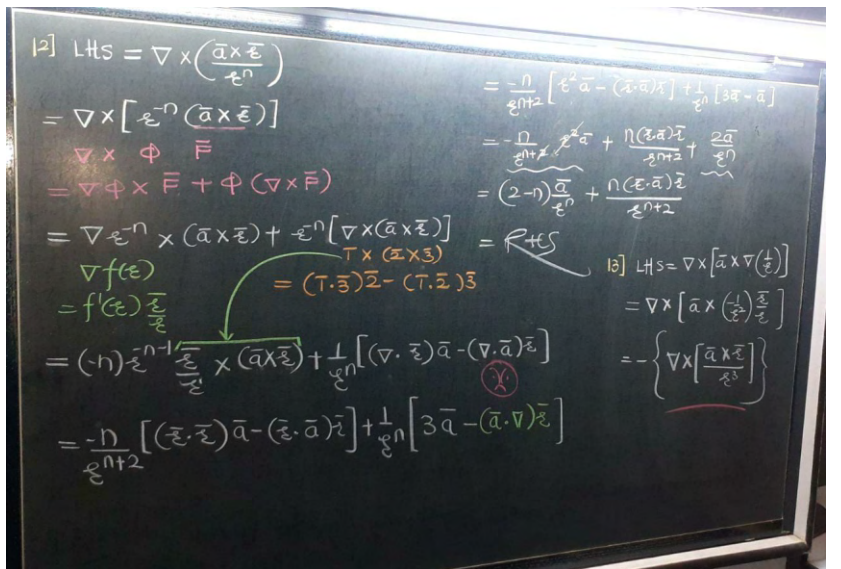 12] LHS = ∇ × (ā × r̄ / rⁿ)
= ∇ × [r⁻ⁿ (ā × r̄)]
∇ × Φ F̄
= ∇Φ × F̄ + Φ (∇ × F̄)
= ∇r⁻ⁿ × (ā × r̄) + r⁻ⁿ [∇ × (ā × r̄)]
∇f(r)
= f'(r) r̄/r
1̄ × (2̄ × 3̄)
= (1̄·3̄)2̄ - (1̄·2̄)3̄
= (-n) r⁻ⁿ⁻¹ r̄/r × (ā × r̄) + 1/rⁿ [(∇·r̄)ā - (∇·ā)r̄]
= -n/rⁿ⁺² [(r̄·r̄)ā - (r̄·ā)r̄] + 1/rⁿ [3ā - (ā·∇)r̄]
= -n/rⁿ⁺² [r²ā - (r̄·ā)r̄] + 1/rⁿ [3ā - ā]
= -n/rⁿ⁺² r²ā + n(r̄·ā)r̄/rⁿ⁺² + 2ā/rⁿ
= (2-n) ā/rⁿ + n(r̄·ā)r̄/rⁿ⁺²
= RHS
13] LHS = ∇ × [ā × ∇(1/r)]
= ∇ × [ā × (-1/r²) r̄/r]
= - {∇ × [ā × r̄ / r³]}